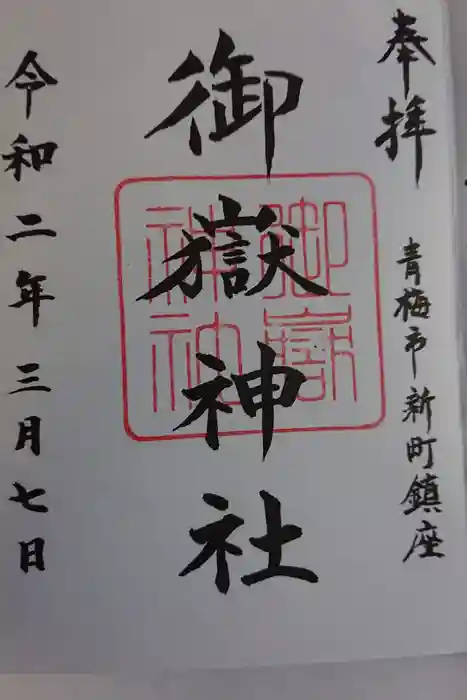 奉拝
青梅市新町鎮座
御嶽神社
令和二年三月七日